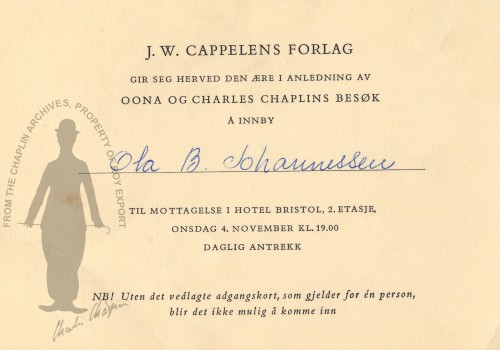 J. W. CAPPELENS FORLAG
GIR SEG HERVED DEN ÆRE I ANLEDNING AV
OONA OG CHARLES CHAPLINS BESØK
Å INNBY
Ola B. Johannessen
TIL MOTTAGELSE I HOTEL BRISTOL, 2. ETASJE,
ONSDAG 4. NOVEMBER KL. 19.00
DAGLIG ANTREKK
NB! Uten det vedlagte adgangskort, som gjelder for én person,
blir det ikke mulig å komme inn
FROM THE CHAPLIN ARCHIVES, PROPERTY OF ROY EXPORT
Charlie Chaplin